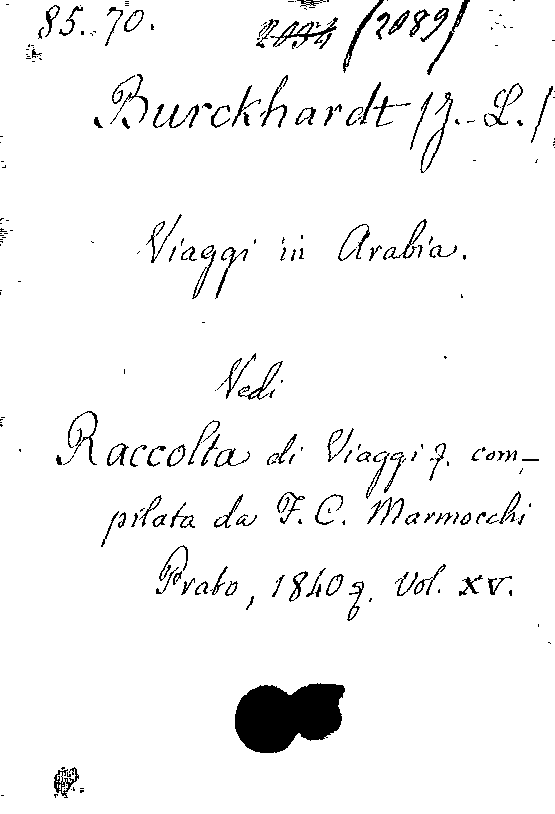 85. 70. 2054 (2089)
Burckhardt (J. L.)
Viaggi in Arabia.
Vedi
Raccolta di Viaggi z. com-
pilata da F. C. Marmocchi
Prato, 1840 z. Vol. XV.